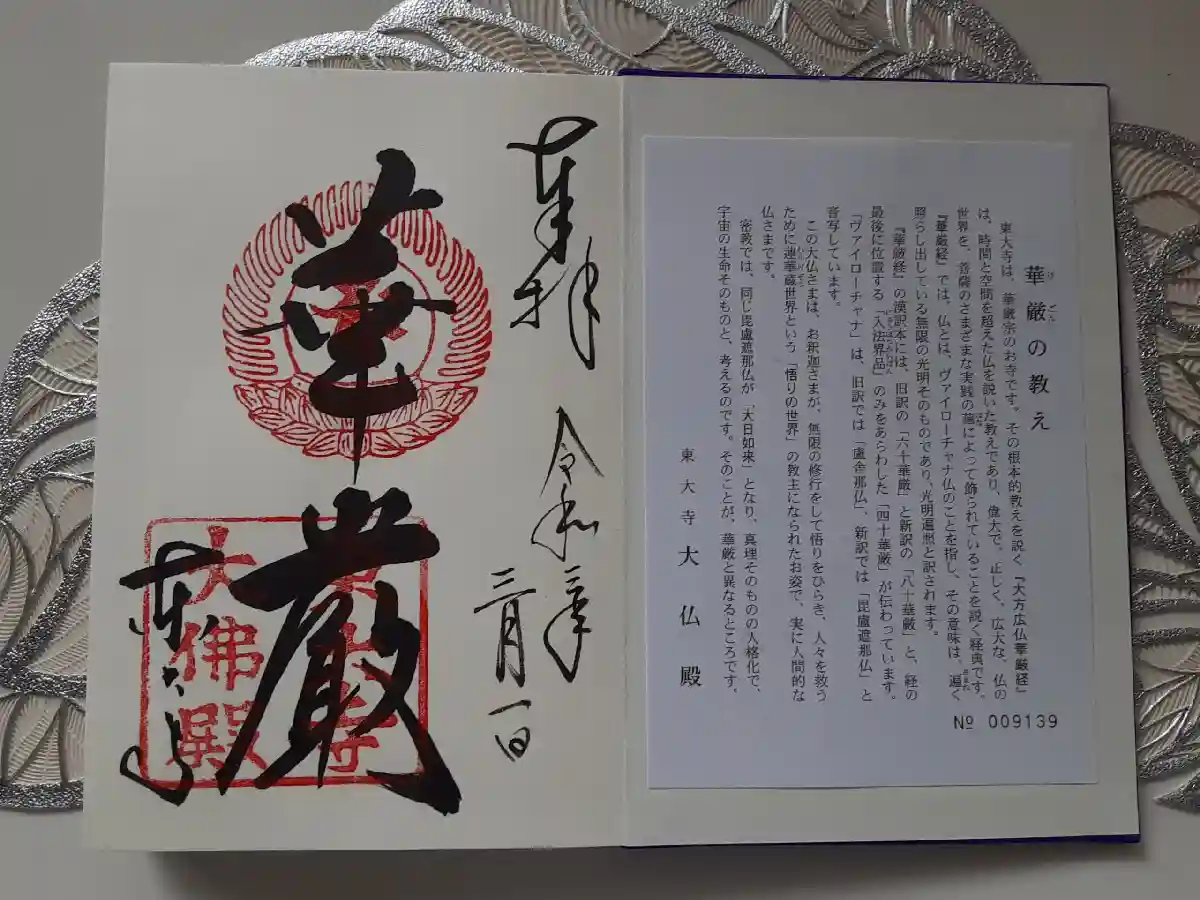 華厳の教え
東大寺は、華厳宗のお寺です。その根本的教えを説く『大方広仏華厳経』
は、時間と空間を超えた仏を説いた教えであり、偉大で、正しく、広大な、仏の
世界を、菩薩のさまざまな実践の華によって飾られていることを説く経典です。
『華厳経』では、仏とは、ヴァイローチャナ仏のことを指し、その意味は、遍く
照らし出している無限の光明そのものであり、光明遍照と訳されます。
『華厳経』の漢訳本には、旧訳の「六十華厳」と新訳の「八十華厳」と、経の
最後に位置する「入法界品」のみをあらわした「四十華厳」が伝わっています。
「ヴァイローチャナ」は、旧訳では「盧舎那仏」、新訳では「毘盧遮那仏」と
音写しています。
この大仏さまは、お釈迦さまが、無限の修行をして悟りをひらき、人々を救う
ために蓮華蔵世界という「悟りの世界」の教主になられたお姿で、実に人間的な
仏さまです。
密教では、同じ毘盧遮那仏が「大日如来」となり、真理そのものの人格化で、
宇宙の生命そのものと、考えるのです。そのことが、華厳と異なるところです。
東大寺 大仏殿
№ 009139
奉拝
令和二年
三月一日
華厳
東大寺
東大寺
大佛殿